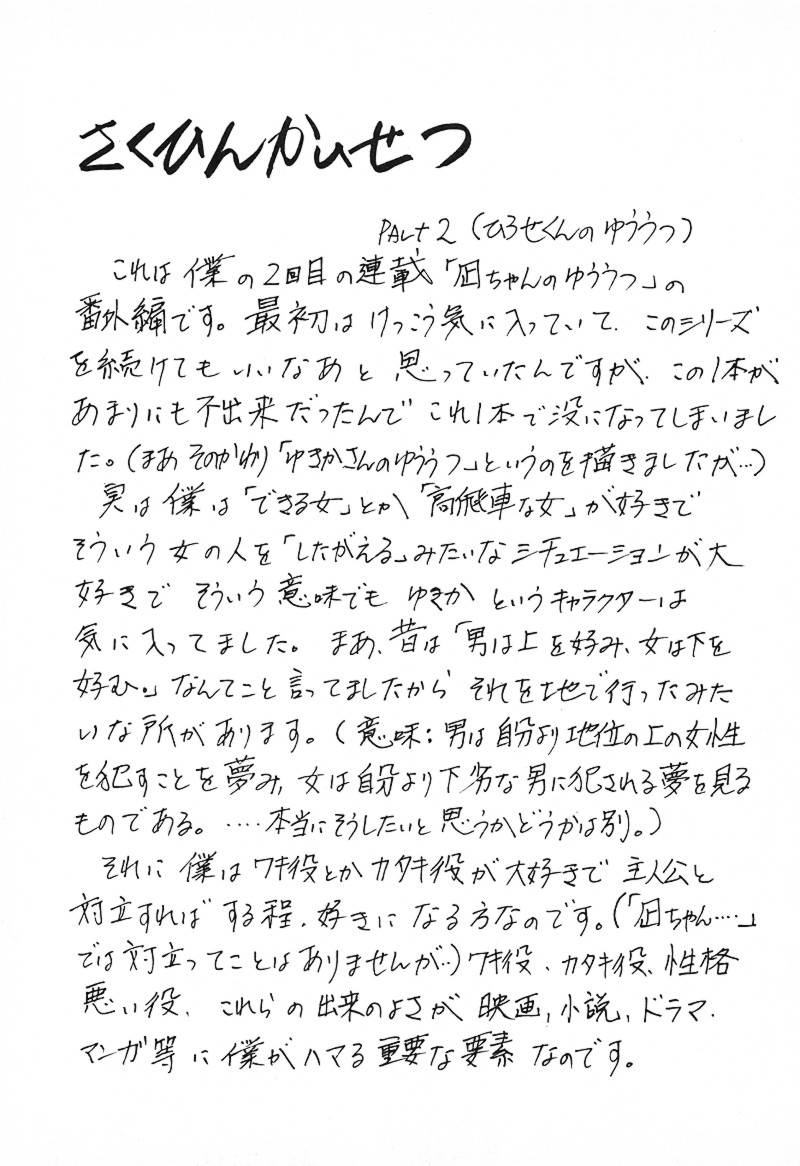 さくひんかいせつ
PARt 2 (ひろせくんのゆううつ)
これは僕の2回目の連載「凪ちゃんのゆううつ」の
番外編です。最初はけっこう気に入っていて、このシリーズ
を続けてもいいなあと思っていたんですが、この1本が
あまりにも不出来だったんでこれ1本で没になってしまいまし
た。(まあそのかわり「ゆきかさんのゆううつ」というのを描きましたが…)
実は僕は「できる女」とか「高飛車な女」が好きで
そういう女の人を「したがえる」みたいなシチュエーションが大
好きでそういう意味でもゆきかというキャラクターは
気に入ってました。まあ、昔は「男は上を好み、女は下を
好む。」なんてこと言ってましたからそれを地で行ったみた
いな所があります。(意味:男は自分より地位の上の女性
を犯すことを夢み、女は自分より下劣な男に犯される夢を見る
ものである。‥‥本当にそうしたいと思うかどうかは別。)
それに僕はワキ役とかカタキ役が大好きで主人公と
対立すればする程、好きになる方なのです。(「凪ちゃん‥‥」
では対立ってことはありませんが…)ワキ役、カタキ役、性格
悪い役、これらの出来のよさが映画、小説、ドラマ、
マンガ等に僕がハマる重要な要素なのです。